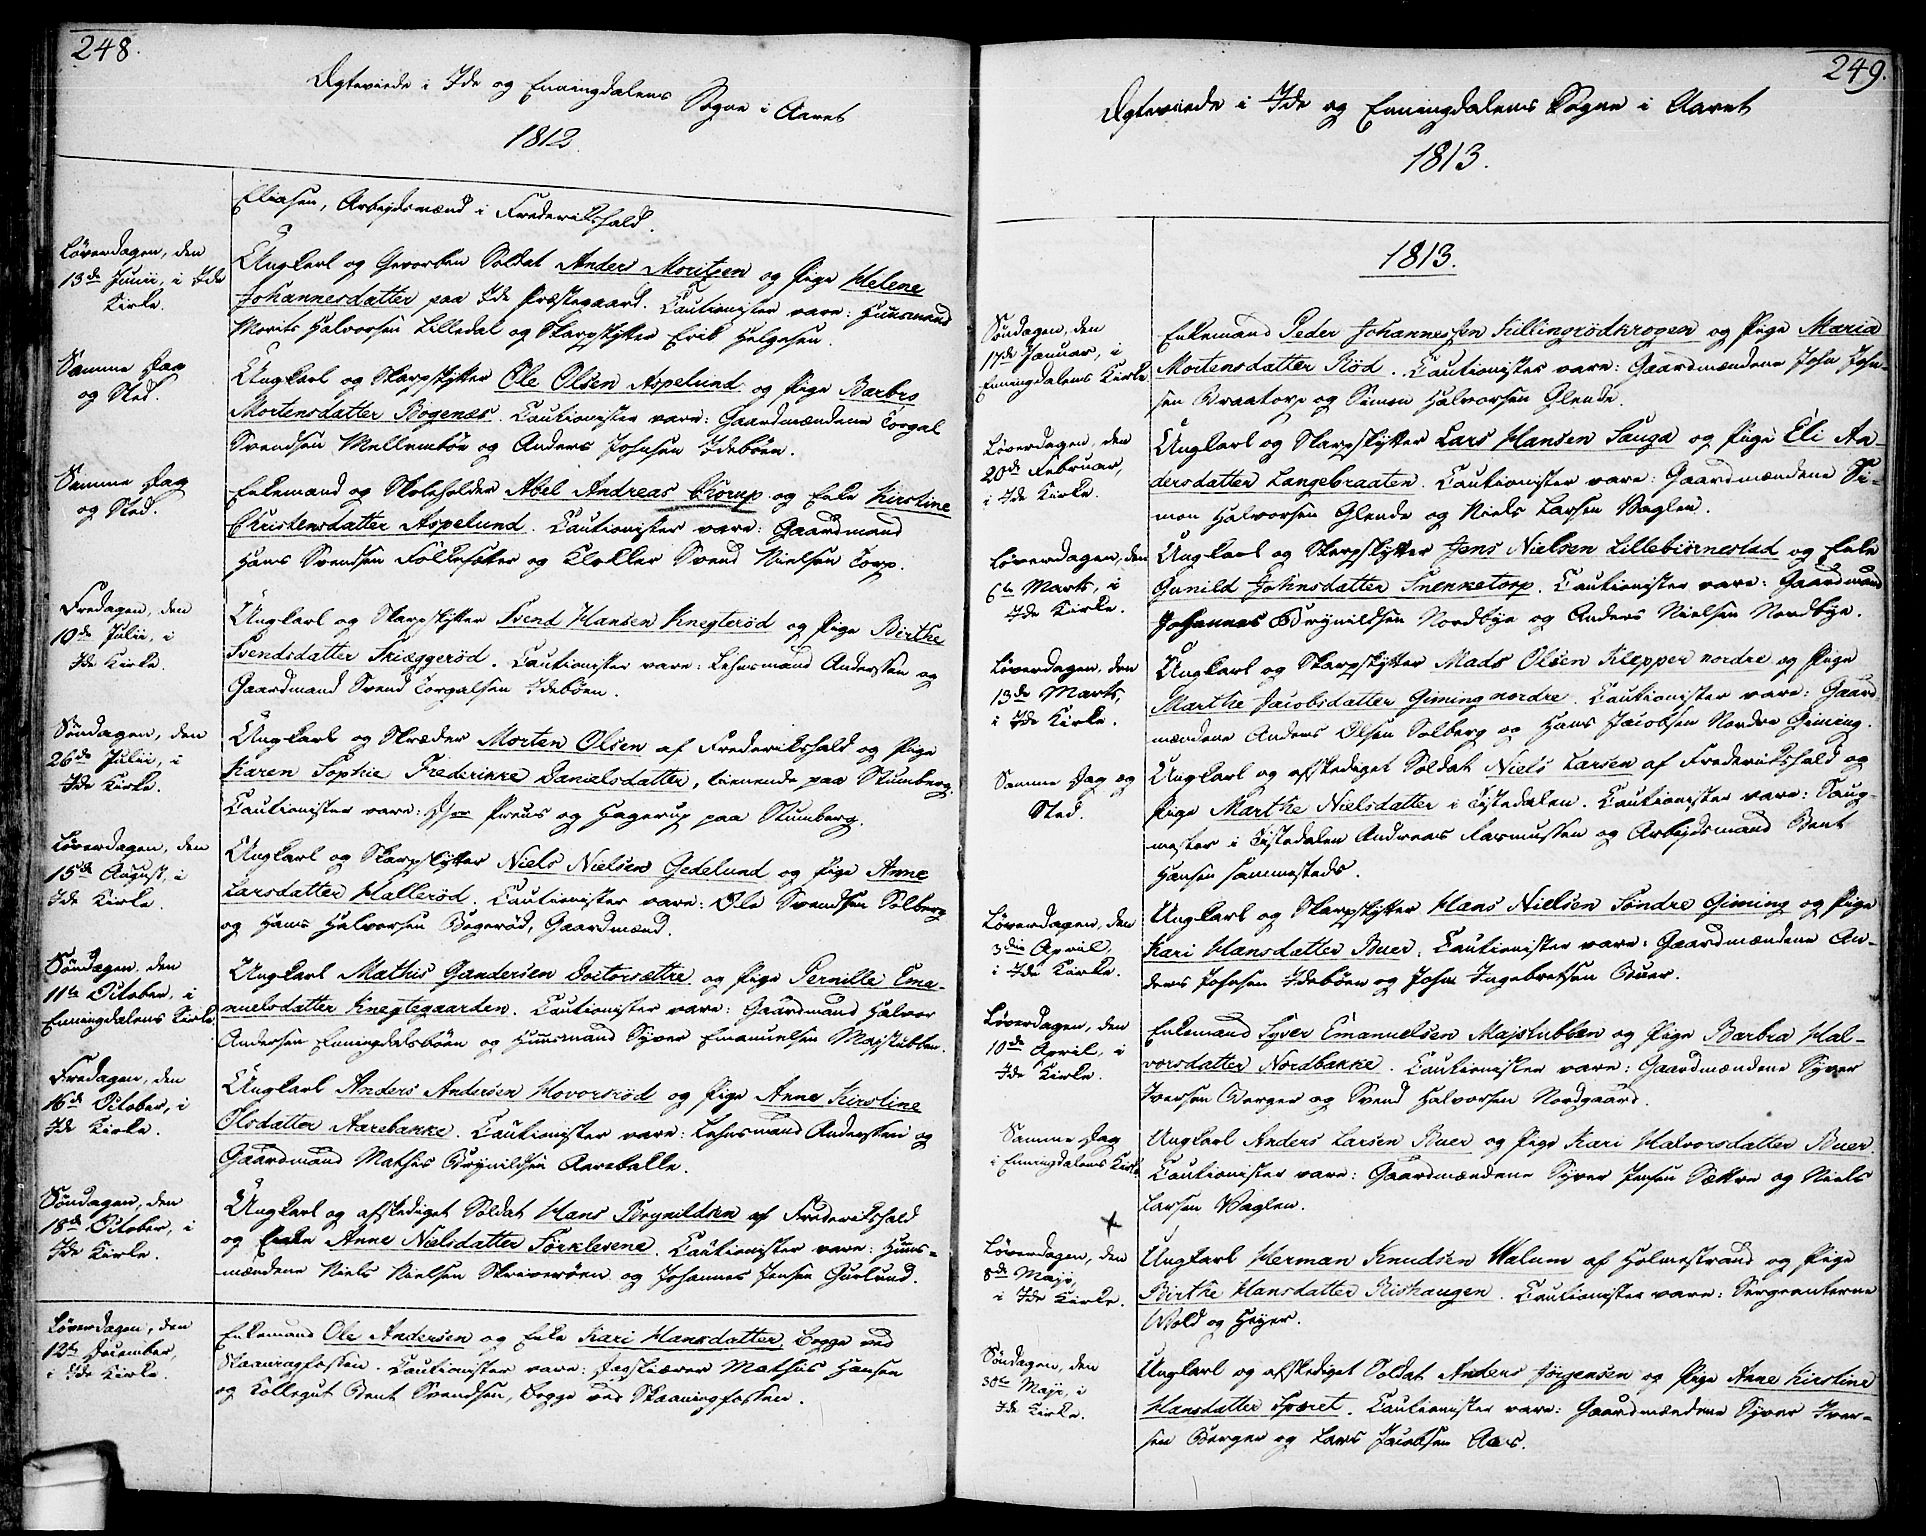 248.
Ægteviede i Ide og Enningdalens Sogne i Aaret
1812.
Eliasen, Arbejdsmænd i Frederikshald.
Løverdagen, den
13de Junii, i Ide
Kirke.
Ungkarl og Gevorben Soldat Anders Moritsen og Pige Helene
Johannesdatter paa Ide Præstegaard. Cautionister vare: Huusmand
Morits Halvorsen Lilledal og Skarpskytter Erik Helgesen.
Samme Dag
og Sted.
Ungkarl og Skarpskytter Ole Olsen Aspelund og Pige Barbro
Mortensdatter Bogenæs. Cautionister vare: Gaardmændene Torgal
Svendsen Mellembøe og Anders Johnsen Idebøen.
Samme Dag
og Sted.
Enkemand og Skoleholder Abel Andreas Crorup og Enke Kirstine
Christensdatter Aspelund. Cautionister vare: Gaardmand
Hans Svendsen Folkesaker og Klokker Svend Nielsen Torp.
Fredagen, den
10de Julii, i
Ide Kirke.
Ungkarl og Skarpskytter Svend Hansen Knegterød og Pige Birthe
Svendsdatter Skiæggerød. Cautionister vare: Lehnsmand Anderssen og
Gaardmand Svend Torgalsen Idebøen.
Søndagen, den
26de Julii, i
Ide Kirke.
Ungkarl og Skræder Morten Olsen af Frederikshald og Pige
Karen Sophie Frederikke Danielsdatter, tienende paa Stumberg.
Cautionister vare: Hrr Preus og Hagerup paa Stumberg.
Løverdagen, den
15de August, i
Ide Kirke.
Ungkarl og Skarpskytter Niels Nielsen Gedelund og Pige Anne
Larsdatter Hallerød. Cautionister vare: Ole Svendsen Solberg
og Hans Halvorsen Bøgerød, Gaardmænd.
Søndagen den
11te October, i
Enningdalens Kirke.
Ungkarl Mathis Gundersen Doctorsættre og Pige Pernille Ema-
nuelsdatter Knegtegaarden. Cautionister vare: Gaardmand Halvor
Andersen Enningdalsbøen og Huusmand Syver Emanuelsen Majstubben.
Fredagen, den
16de October, i
Ide Kirke.
Ungkarl Anders Andersen Hovorsrød og Pige Anne Kirstine
Olsdatter Aarebakke. Cautionister vare: Lehnsmand Anderssen og
Gaardmand Mathis Brynildsen Aarebakke.
Søndagen, den
18de October, i
Ide Kirke.
Ungkarl og afskediget Soldat Hans Brynildsen af Frederikshald
og Enke Anne Nielsdatter Sørklevene. Cautionister vare: Huus-
mændene Niels Nielsen Skriverøen og Johannes Jensen Gurlund.
Løverdagen, den
12te December,
i Ide Kirke.
Enkemand Ole Andersen og Enke Kari Hansdatter, begge ved
Skaaningfossen. Cautionister vare: Dagskiærer Mathis Hansen
og Kollegut Bent Svendsen, begge ved Skaaningfossen.
249.
Ægteviede i Ide og Enningdalens Sogne i Aaret
1813.
1813.
Søndagen, den
17de Januar, i
Enningdalens Kirke
Enkemand Peder Johannessen Killingrødkrogen og Pige Maria
Mortensdatter Rød. Cautionister vare: Gaardmændene John John-
sen Braatorp og Simon Halvorsen Glende.
Løverdagen, den
20de Februar,
i Ide Kirke.
Ungkarl og Skarpskytter Lars Hansen Sauga og Pige Eli An-
dersdatter Langebraaten. Cautionister vare: Gaardmændene Si-
mon Halvorsen Glende og Niels Larsen Vaglen.
Løverdagen, den
6te Marts, i
Ide Kirke.
Ungkarl og Skarpskytter Jens Nielsen Lillebiørnestad og Enke
Gunild Johnsdatter Snenketorp. Cautionister vare: Gaardmænd
Johannes Brynildsen Nordbye og Anders Nielsen Nordbye.
Løverdagen, den
13de Marts,
i Ide Kirke.
Ungkarl og Skarpskytter Mads Olsen Klepper nordre og Pige
Marthe Jacobsdatter Giming nordre. Cautionister vare: Gaard
mændene Anders Olsen Solberg og Hans Jacobsen Nordre Giming.
Samme Dag og
Sted.
Ungkarl og afskediget Soldat Niels Larsen af Frederikshald og
Pige Marthe Nielsdatter i Tistedalen. Cautionister vare: Saug-
mester i Tistedalen Andreas Rasmussen og Arbejdsmand Bent
Hansen sammesteds.
Løverdagen, den
3die April,
i Ide Kirke.
Ungkarl og Skarpskytter Hans Nielsen Søndre Giming og Pige
Kari Hansdatter Buer. Cautionister vare: Gaardmændene An-
ders Johnsen Idebøen og John Ingebretsen Buer.
Løverdagen, den
10de April, i
Ide Kirke.
Enkemand Syver Emanuelsen Majstubben og Pige Barbra Hal-
vorsdatter Nordbakke. Cautionister vare: Gaardmændene Syver
Iversen Berger og Svend Halvorsen Nordgaard.
Samme Dag
i Enningdalens Kirke
Ungkarl Anders Larsen Buer og Pige Kari Halvorsdatter Buer.
Cautionister vare: Gaardmændene Syver Jensen Sættre og Niels
Larsen Vaglen.
Løverdagen, den
8de Majo,
i Ide Kirke.
Ungkarl Herman Knudsen Walum af Holmestrand og Pige
Birthe Hansdatter Rishaugen. Cautionister vare: Sergeanterne
Wold og Heyer.
Søndagen, den
30te Maji, i
Ide Kirke.
Ungkarl og afskediget Soldat Anders Jørgensen og Pige Anne Kirstine
Hansdatter Sporet. Cautionister vare: Gaardmændene Syver Iver-
sen Berger og Lars Jacobsen Aas.